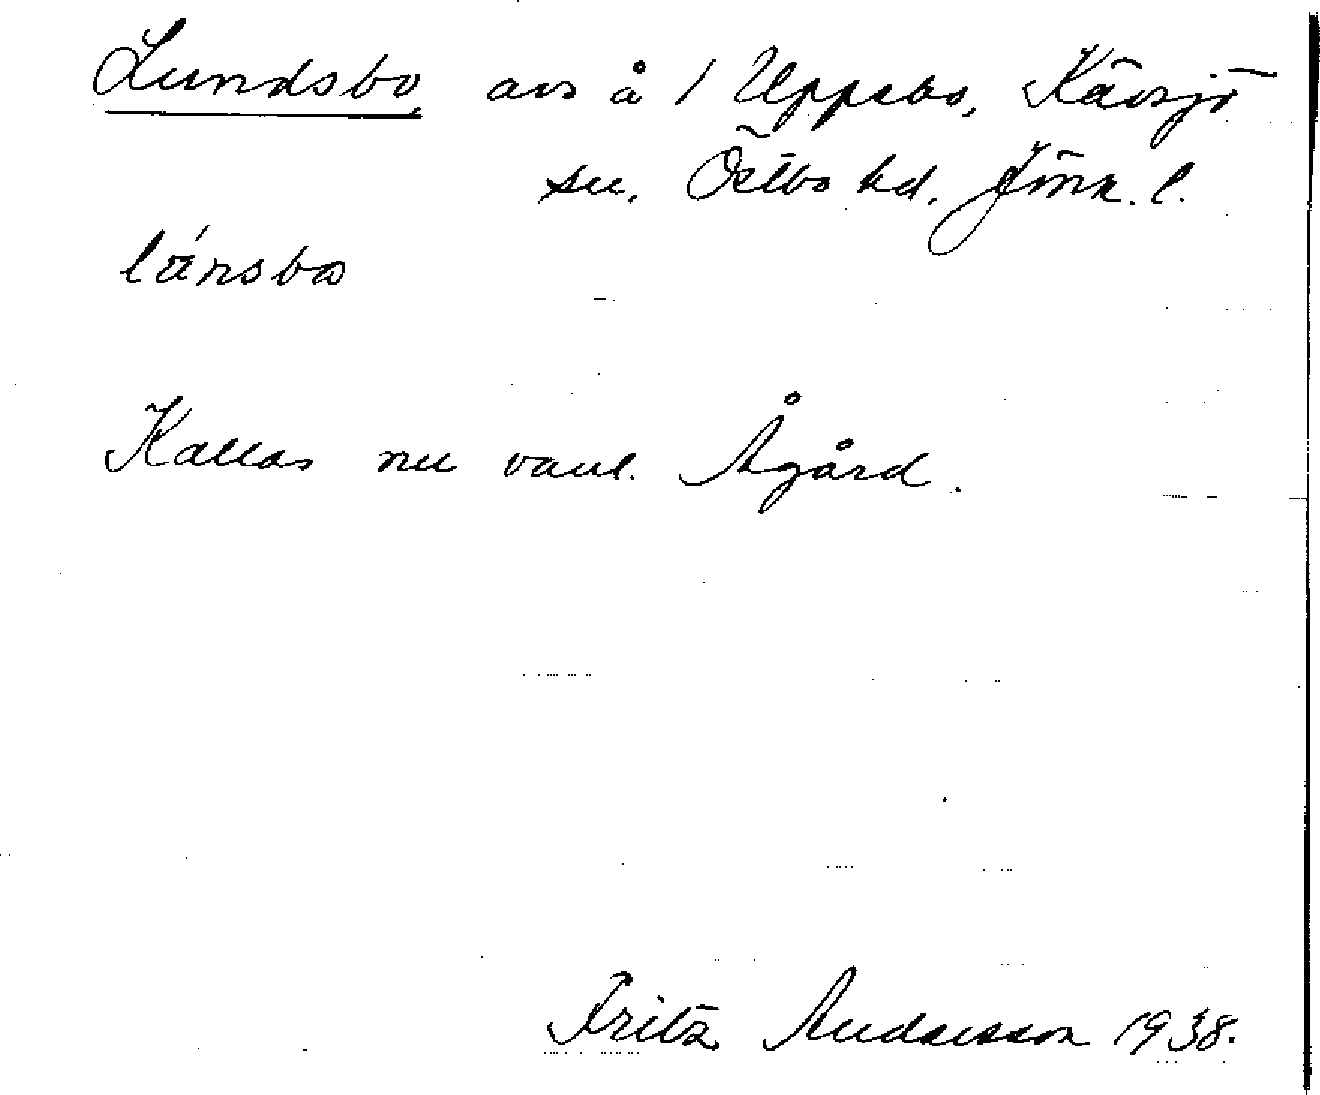 Lundsbo, avs å 1 Uppebo, Kävsjö
sn. Östbo hd. Jönk. l.
lánsbo
Kallas nu vanl. Ågård.
Fritz Andersson 1938.